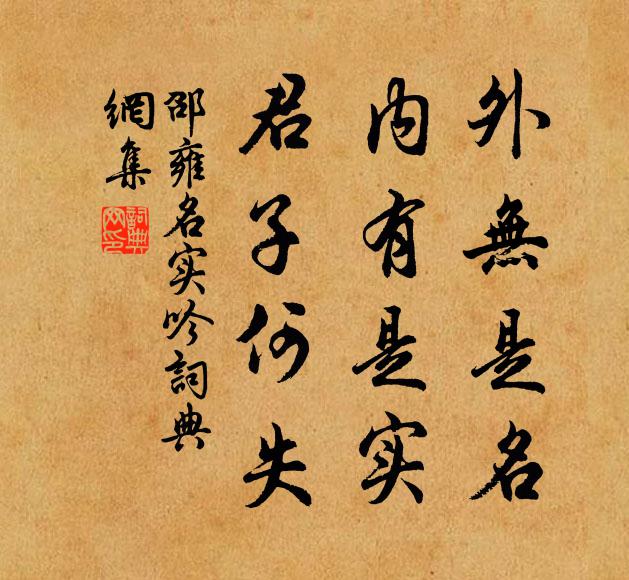 外無是名
内有是实
君子何失
邵雍名实吟詞典
網集
詞典
网印